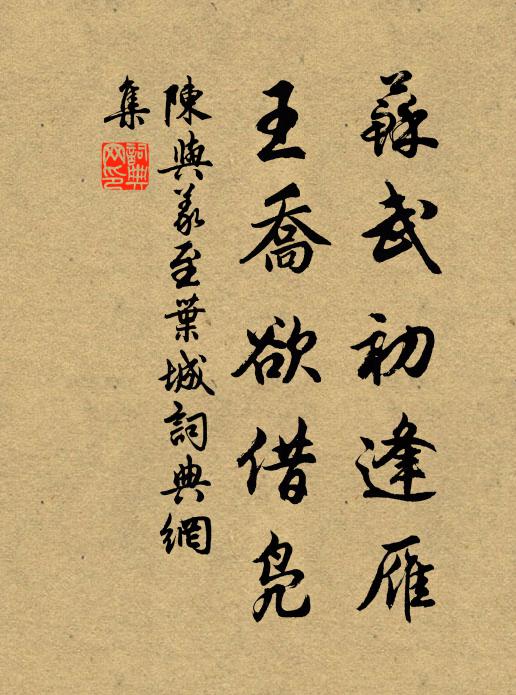 蘇武初逢雁
王喬欲借鳧
陳與義至葉城詞典網
集
詞典網印